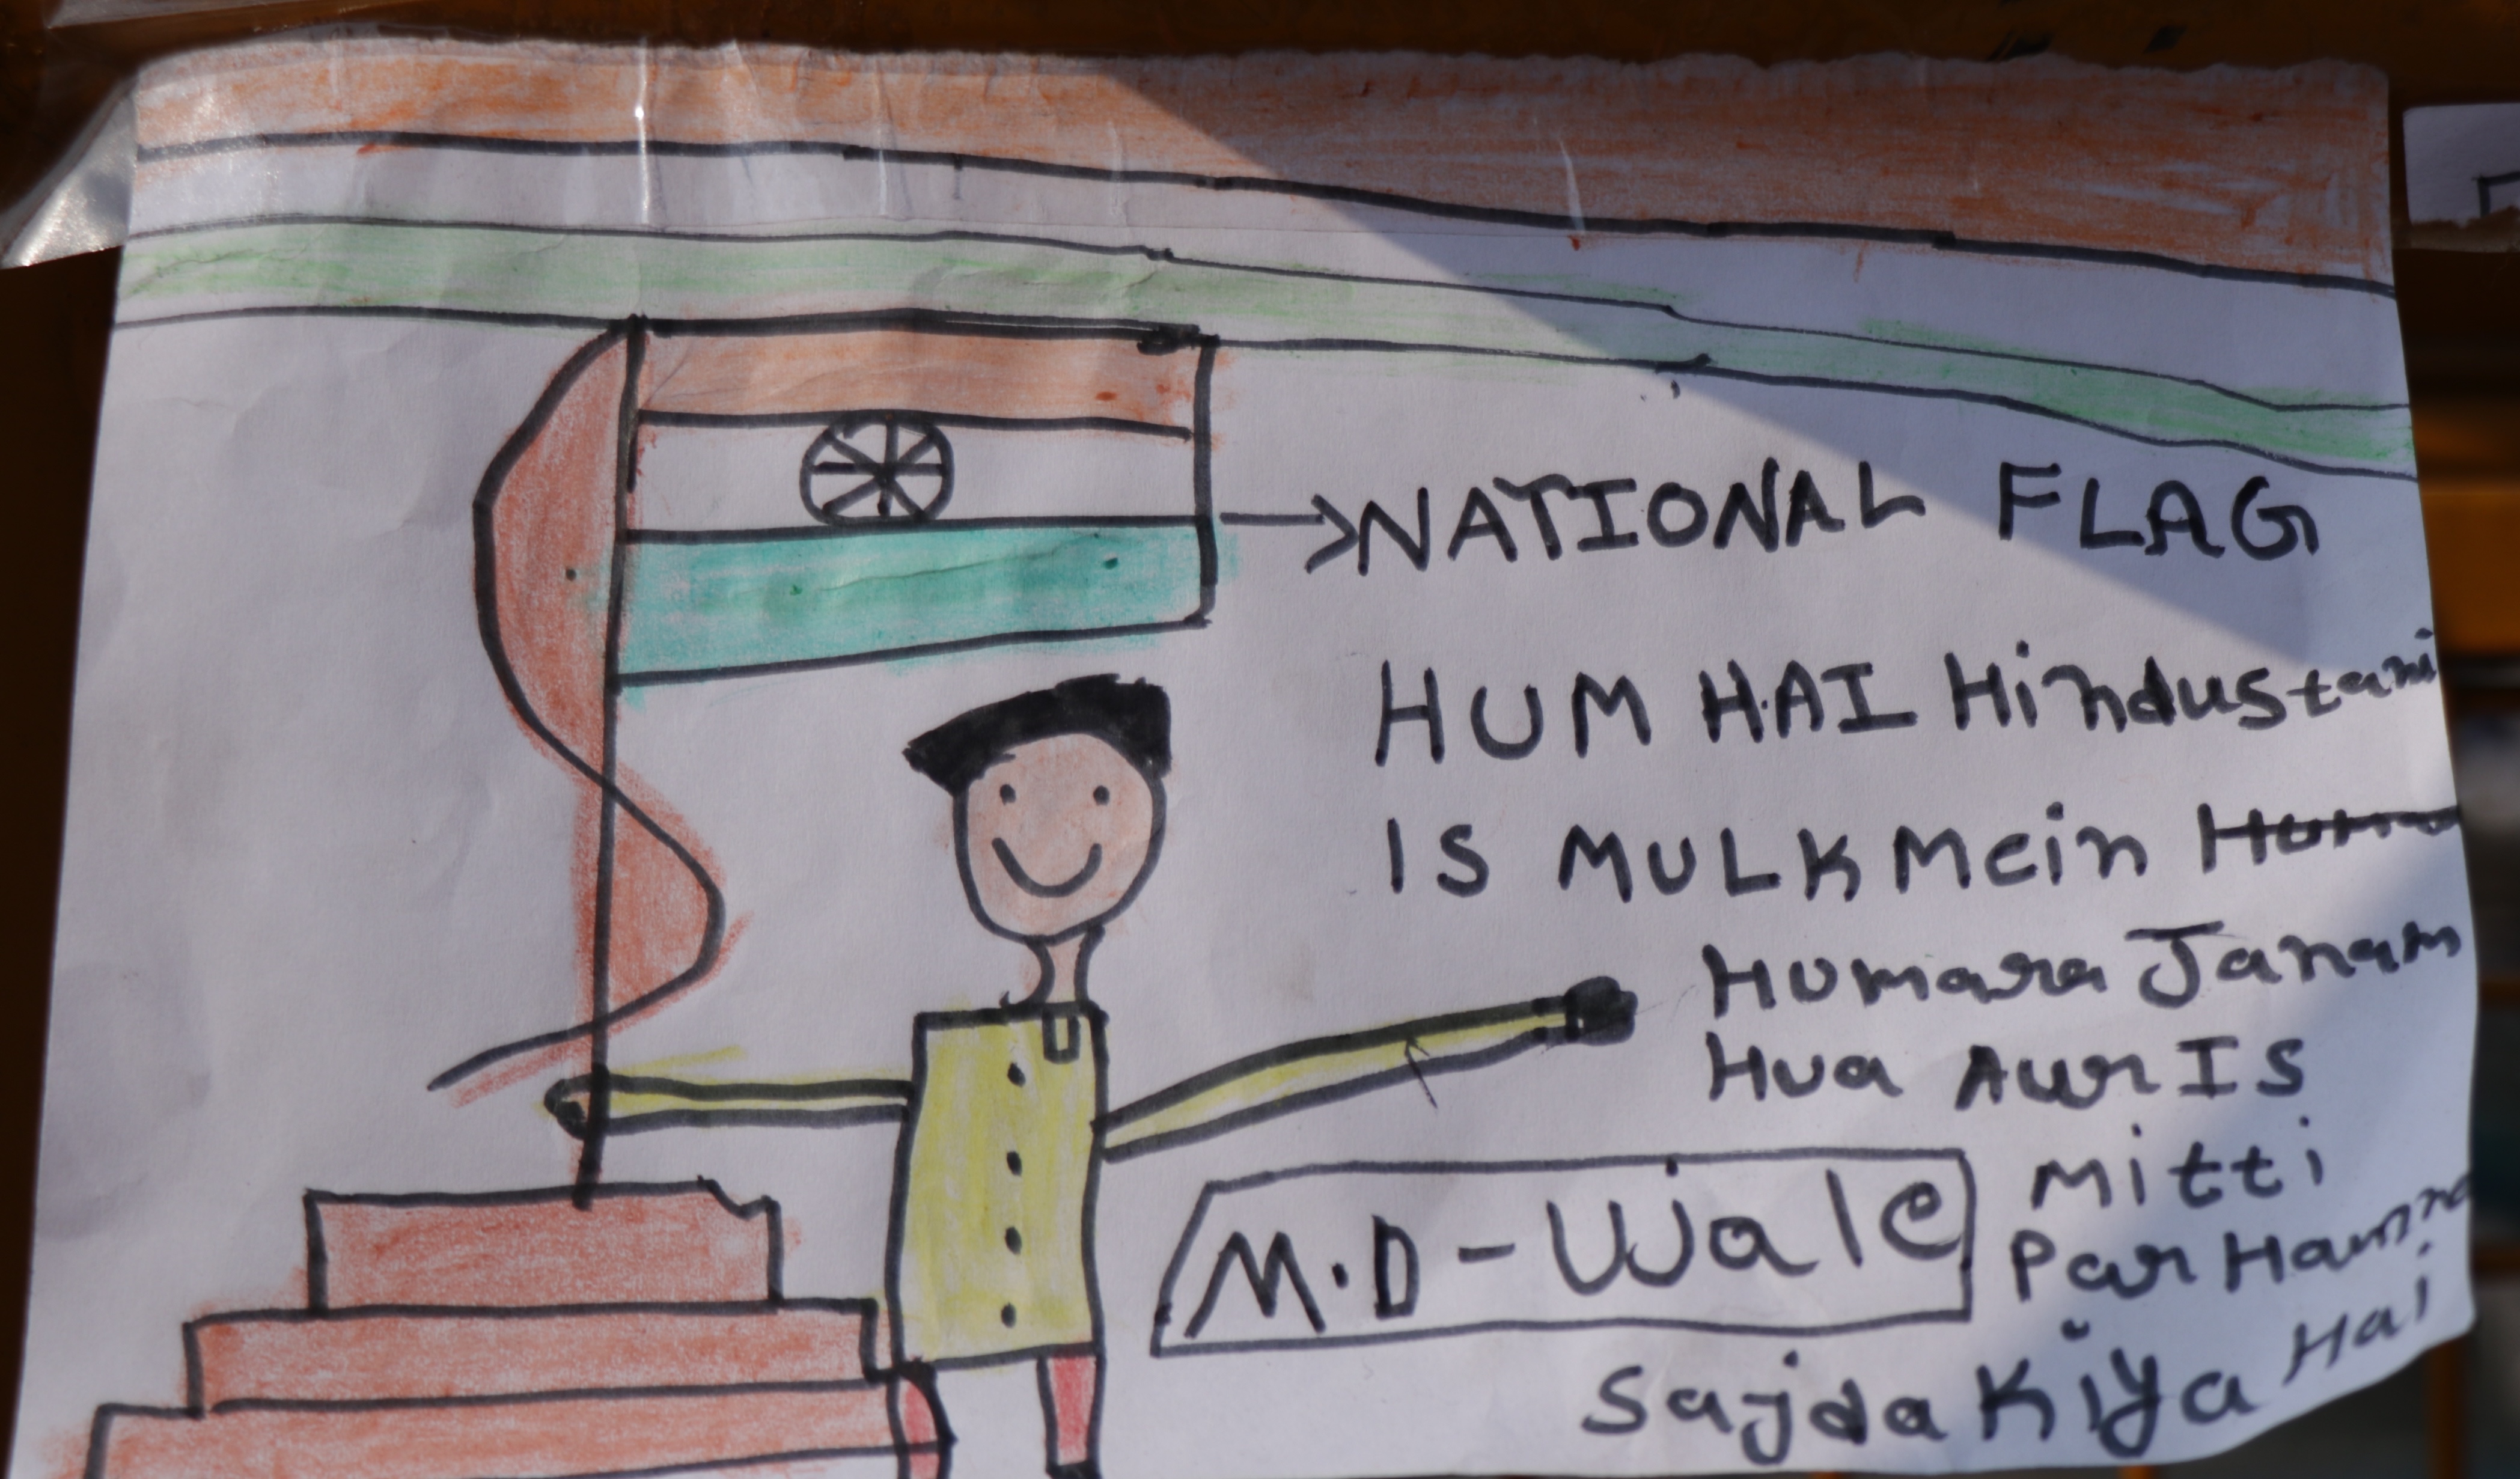 NATIONAL FLAG
HUM HAI Hindustani
IS MULK Mein
Humara Janam
Hua Aur IS
Mitti
Par Hamne
M.D - Wale
Sajda Kiya Hai